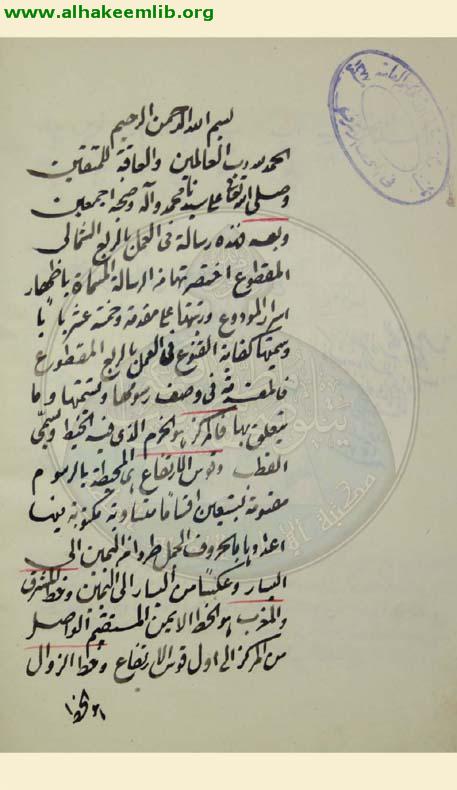 www.alhakeemlib.org
بسم الله الرحمن الرحيم
الحمد لله رب العالمين والعاقبة للمتقين
وصلى الله تعالى على سيدنا محمد وآله وصحبه اجمعين
وبعد فهذه رسالة في العمل بالربع الشمالي
المقطوع اختصرتها من الرسالة المسماة باظهار
اسرار المودوع ورتبتها على مقدمة وخمسة عشر بابا
وسميتها كفاية القنوع في العمل بالربع المقطوع
فالمقدمة في وصف رسومها وتسميتها وما
يتعلق بها فالمركز هو الخرم الذي فيه الخيط وسمي
القطب وقوس الارتفاع هي المحيطة بالرسوم
مقسومة بتسعين اقساما متساوية مكتوبة فيها
اعدادها بالحروف الجمل طردا من اليمين الى
اليسار وعكسا من اليسار الى اليمين وخط المشرق
والمغرب هو الخط الايمن المستقيم الواصل
من المركز الى اول قوس الارتفاع وخط الزوال